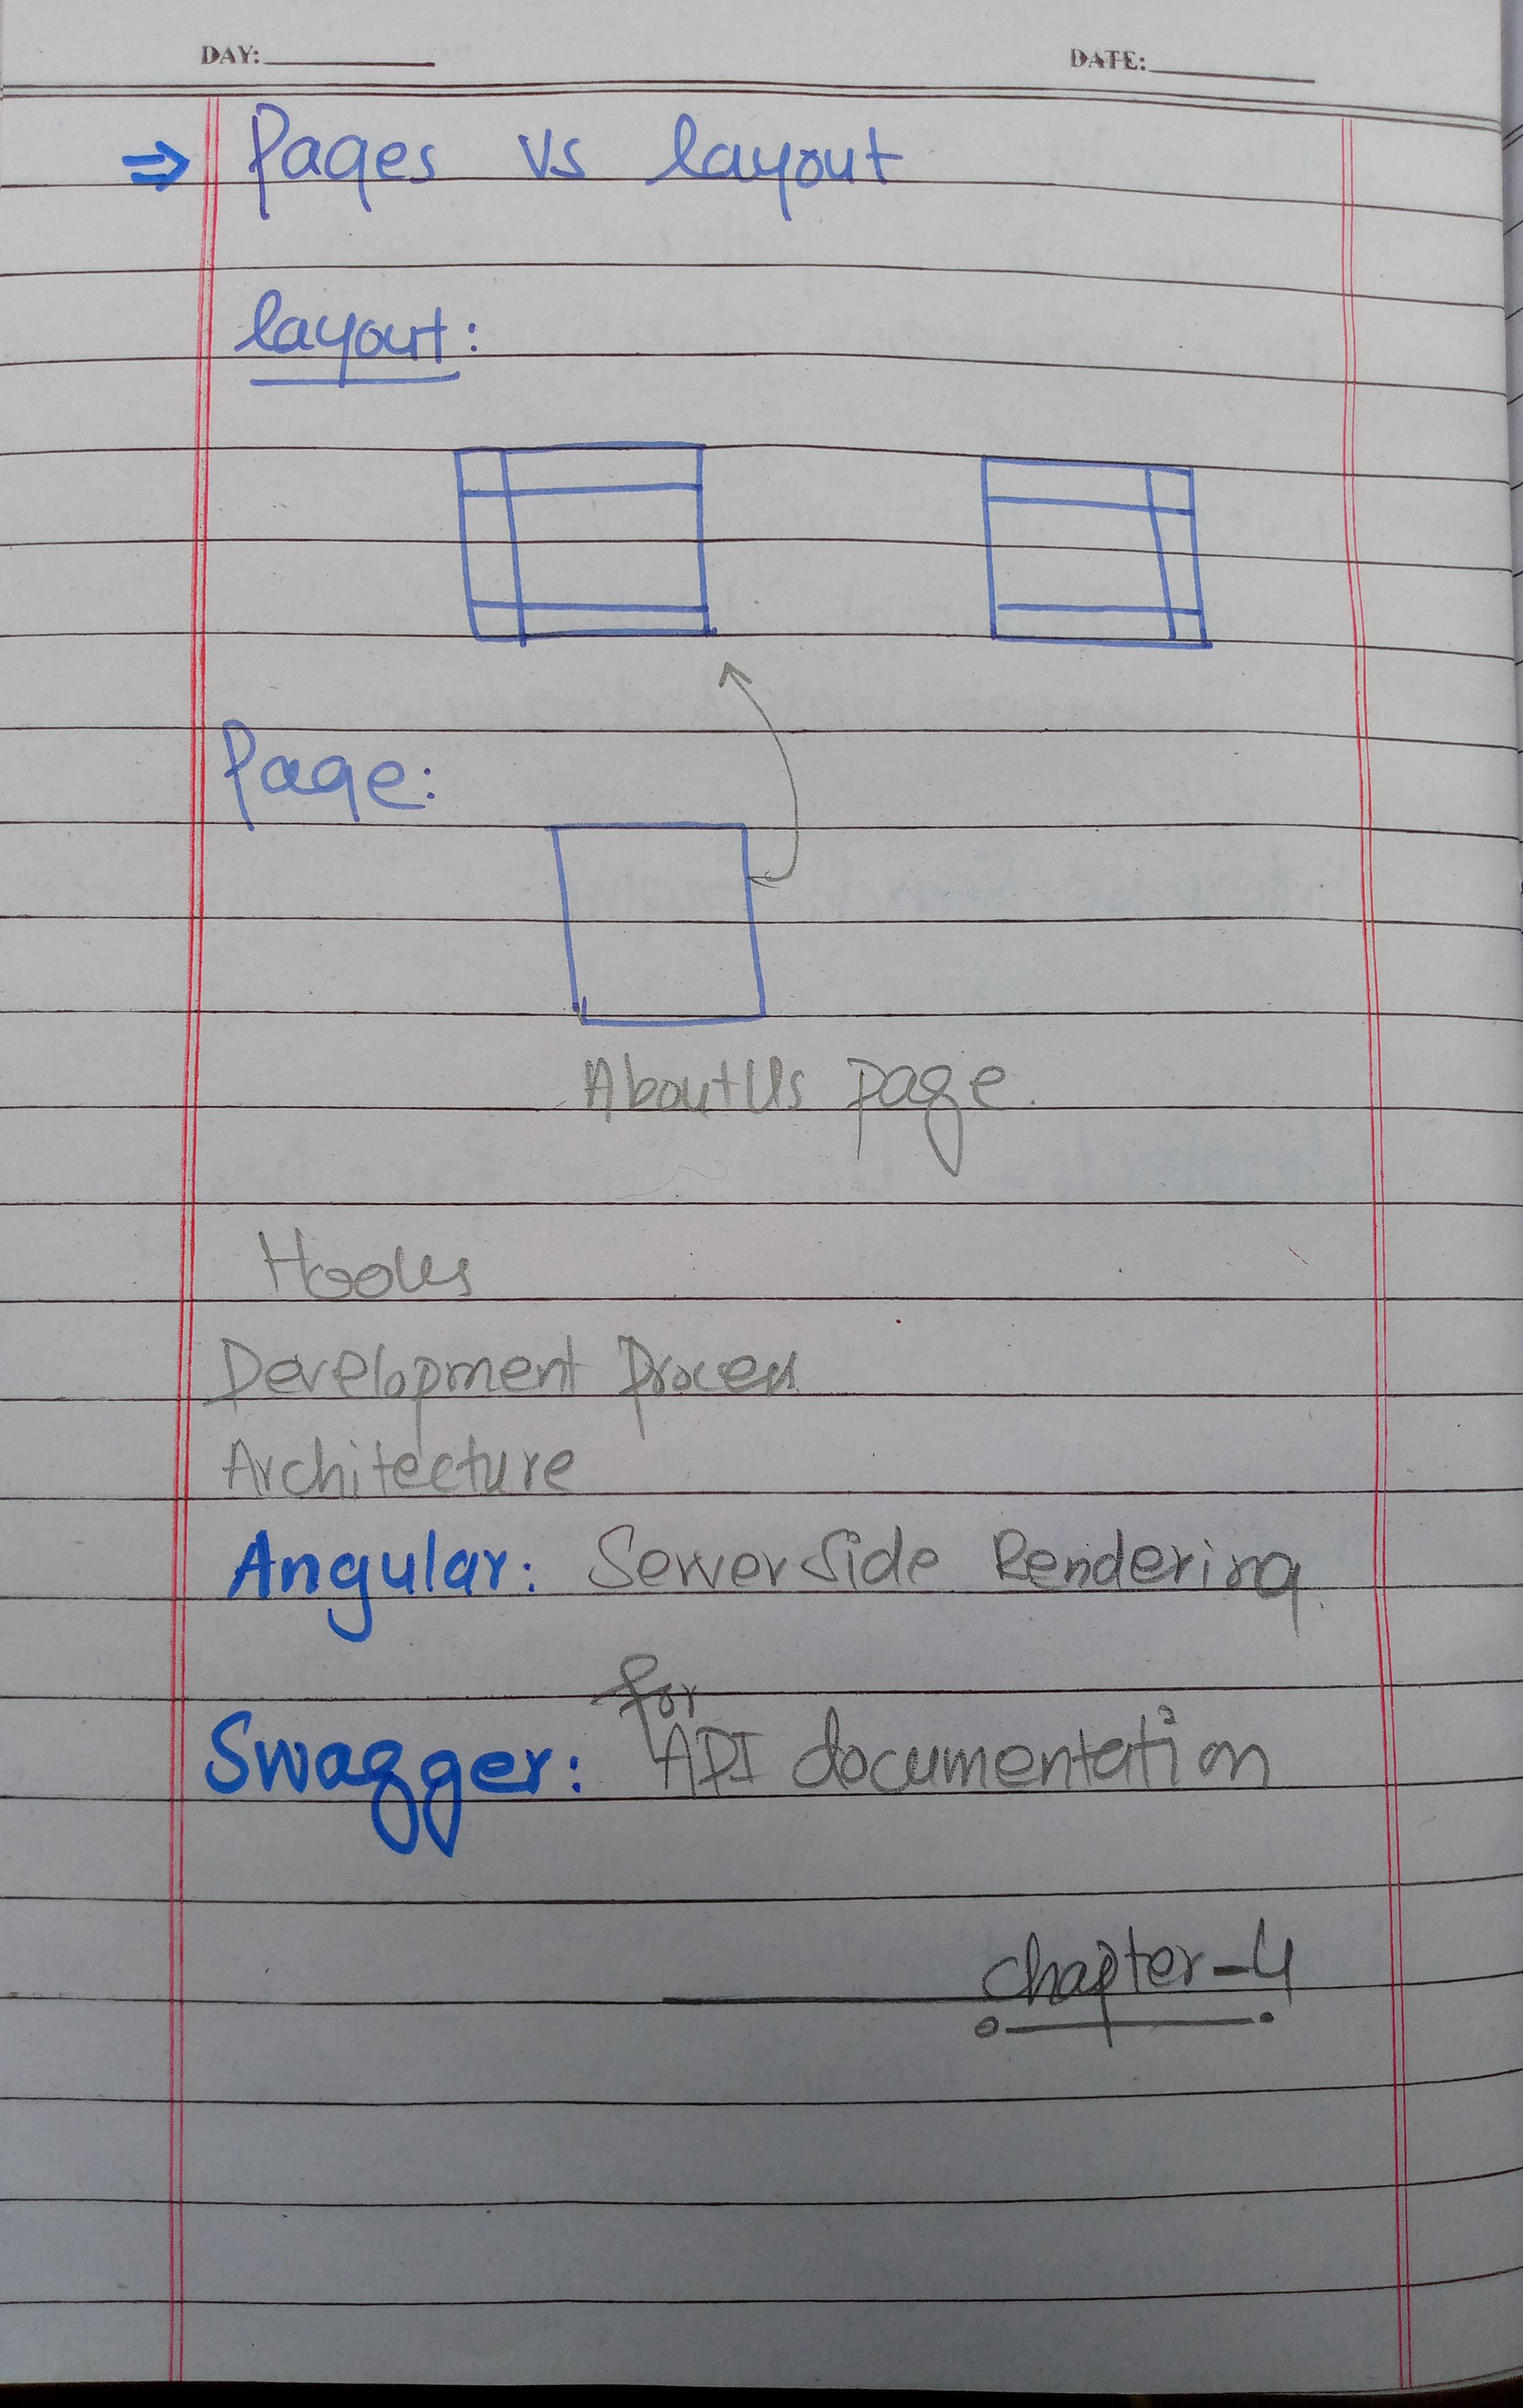 DAY: DATE:
⇒ Pages vs layout
layout:
Page:
AboutUs page.
Hooks
Development Process
Architecture
Angular: Server Side Rendering.
for
Swagger: API documentation
chapter-4